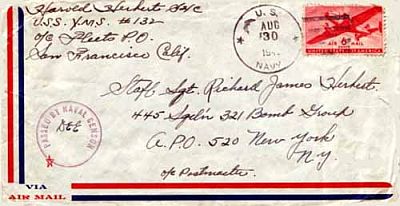 Harold Herbert S1/C
U.S.S. Y.M.S. #132
c/o Fleet P.O.
San Francisco Calif.
U.S.
AUG
30
NAVY
AIR MAIL
6¢
UNITED STATES OF AMERICA
Staff Sgt. Richard James Herbert
445 Sqd'n 321 Bomb Group
A.P.O. 520 New York
N.Y.
c/o Postmaster
PASSED BY NAVAL CENSOR
VIA
AIR MAIL